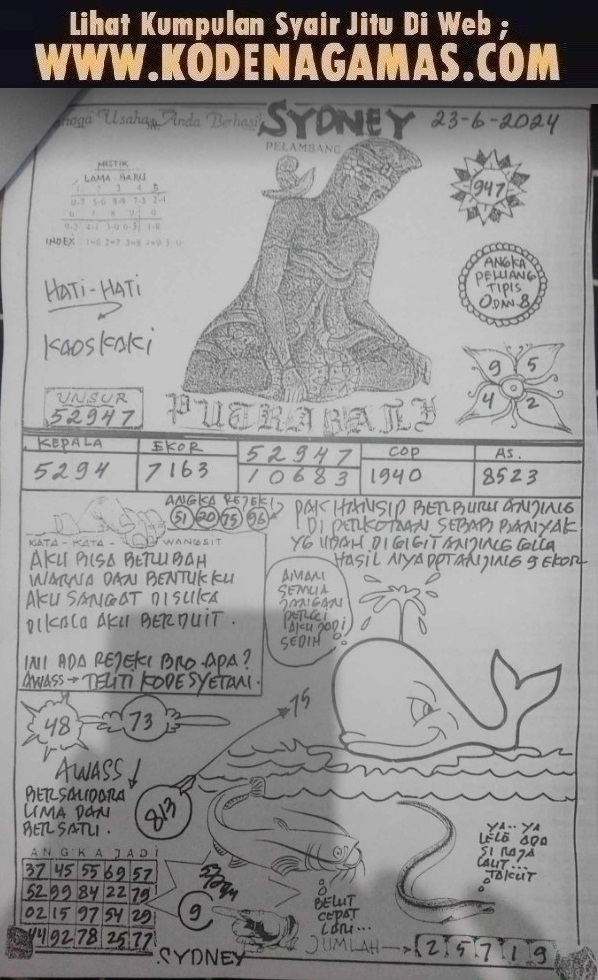 Lihat Kumpulan Syair Jitu Di Web ;
WWW.KODENAGAMAS.COM
Usaha Anda Berhasil
SYDNEY
23-6-2024
PELAMBANG
MISTIK
LAMA BARU
INDEX
947
ANGKA
PELUANG
TIPIS
0 DAN 8
HATI-HATI
KAOSKAKI
9 5
4 2
UNSUR
52947
PUTRA BALI
KEPALA
5294
EKOR
7163
52947
10683
COP
1940
AS.
8523
ANGKA REJEKI
51 20 75 96
PAK HANSIP BERBURU ANJING
DI PERKOTAAN SEBAB BANYAK
YG UDAH DI GIGIT ANJING GILA
HASIL NYA DPT ANJING 9 EKOR
KATA - KATA WANGSIT
AKU BISA BERUBAH
WARNA DAN BENTUKKU
AKU SANGAT DISUKA
DIKALA AKU BERDUIT.
INI ADA REJEKI BRO APA?
AWASS → TELITI KODE SYETAN.
AMAN
SEMUA
JANGAN
PERGI
AKU JADI
SEDIH
75
48
73
AWASS
BERSAUDARA
LIMA DAN
BERSATU.
813
ANGKA JADI
37 45 55 69 57
52 99 84 22 79
02 15 97 54 29
44 92 78 25 77
9
YA.. YA
LELE ADA
SI RAJA
LAUT...
TAKUT
BELUT
CEPAT
LARI...
JUMLAH → 2 5 7 1 9
.SYDNEY